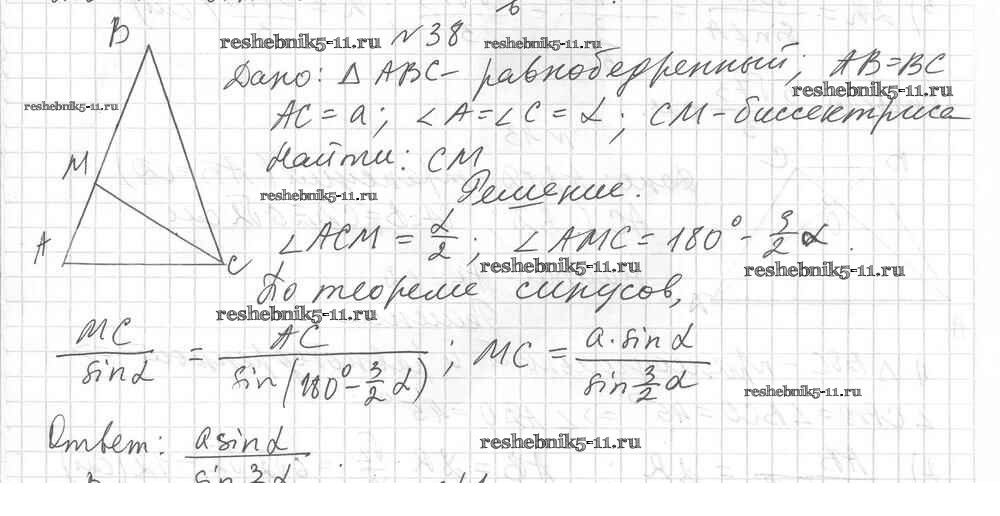 B
reshebnik5-11.ru №38 reshebnik5-11.ru
Дано: Δ ABC – равнобедренный; AB=BC
reshebnik5-11.ru
reshebnik5-11.ru
AC = a; ∠A=∠C = α; CM – биссектриса
M
Найти: CM
reshebnik5-11.ru
Решение.
A
C
∠ACM = α/2; ∠AMC = 180° - 3/2 α.
reshebnik5-11.ru reshebnik5-11.ru
По теореме синусов,
reshebnik5-11.ru
MC/sinα = AC/sin(180° - 3/2 α); MC = a·sinα/sin 3/2 α
reshebnik5-11.ru
Ответ: a sinα/sin 3/2 α.
reshebnik5-11.ru